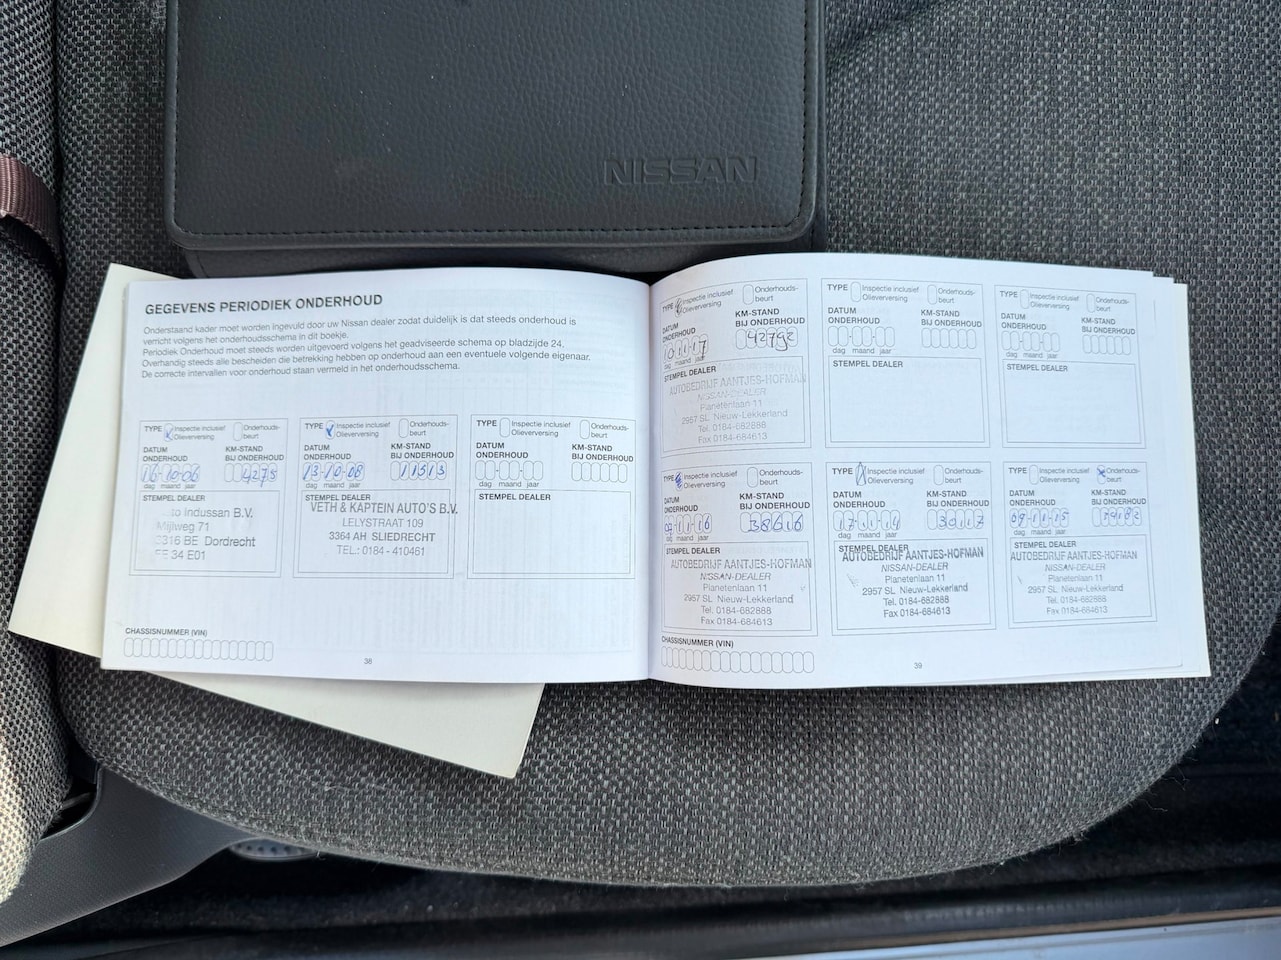 NISSAN
GEGEVENS PERIODIEK ONDERHOUD
Onderstaand kader moet worden ingevuld door uw Nissan dealer zodat duidelijk is dat steeds onderhoud is
verricht volgens het onderhoudsschema in dit boekje.
Periodiek Onderhoud moet steeds worden uitgevoerd volgens het geadviseerde schema op bladzijde 24.
Overhandig steeds alle bescheiden die betrekking hebben op onderhoud aan een eventuele volgende eigenaar.
De correcte intervallen voor onderhoud staan vermeld in het onderhoudsschema.
TYPE Inspectie inclusief Olieverversing Onderhouds-beurt
DATUM ONDERHOUD KM-STAND BIJ ONDERHOUD
16-10-06 4275
dag maand jaar
STEMPEL DEALER
Indussan B.V.
Mijlweg 71
3316 BE Dordrecht
34 E01
TYPE Inspectie inclusief Olieverversing Onderhouds-beurt
DATUM ONDERHOUD KM-STAND BIJ ONDERHOUD
13-10-08 11513
dag maand jaar
STEMPEL DEALER
VETH & KAPTEIN AUTO'S B.V.
LELYSTRAAT 109
3364 AH SLIEDRECHT
TEL.: 0184 - 410461
TYPE Inspectie inclusief Olieverversing Onderhouds-beurt
DATUM ONDERHOUD KM-STAND BIJ ONDERHOUD
dag maand jaar
STEMPEL DEALER
CHASSISNUMMER (VIN)
38
TYPE Inspectie inclusief Olieverversing Onderhouds-beurt
DATUM ONDERHOUD KM-STAND BIJ ONDERHOUD
10-11-17 42792
dag maand jaar
STEMPEL DEALER
AUTOBEDRIJF AANTJES-HOFMAN
NISSAN-DEALER
Planetenlaan 11
2957 SL Nieuw-Lekkerland
Tel. 0184-682888
Fax 0184-684613
TYPE Inspectie inclusief Olieverversing Onderhouds-beurt
DATUM ONDERHOUD KM-STAND BIJ ONDERHOUD
dag maand jaar
STEMPEL DEALER
TYPE Inspectie inclusief Olieverversing Onderhouds-beurt
DATUM ONDERHOUD KM-STAND BIJ ONDERHOUD
dag maand jaar
STEMPEL DEALER
TYPE Inspectie inclusief Olieverversing Onderhouds-beurt
DATUM ONDERHOUD KM-STAND BIJ ONDERHOUD
38616
dag maand jaar
STEMPEL DEALER
AUTOBEDRIJF AANTJES-HOFMAN
NISSAN-DEALER
Planetenlaan 11
2957 SL Nieuw-Lekkerland
Tel. 0184-682888
Fax 0184-684613
TYPE Inspectie inclusief Olieverversing Onderhouds-beurt
DATUM ONDERHOUD KM-STAND BIJ ONDERHOUD
30117
dag maand jaar
STEMPEL DEALER
AUTOBEDRIJF AANTJES-HOFMAN
NISSAN-DEALER
Planetenlaan 11
2957 SL Nieuw-Lekkerland
Tel. 0184-682888
Fax 0184-684613
TYPE Inspectie inclusief Olieverversing Onderhouds-beurt
DATUM ONDERHOUD KM-STAND BIJ ONDERHOUD
dag maand jaar
STEMPEL DEALER
AUTOBEDRIJF AANTJES-HOFMAN
NISSAN-DEALER
Planetenlaan 11
2957 SL Nieuw-Lekkerland
Tel. 0184-682888
Fax 0184-684613
CHASSISNUMMER (VIN)
39